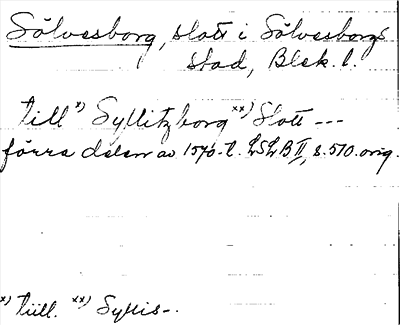 Sölvesborg, slott i Sölvesborgs
stad, Blek. l.
till x) Syllitzborg xx) Slott ---
förra delen av 1540-t. LSLB II, s. 510. orig.
x) tiill. xx) Syllis-.